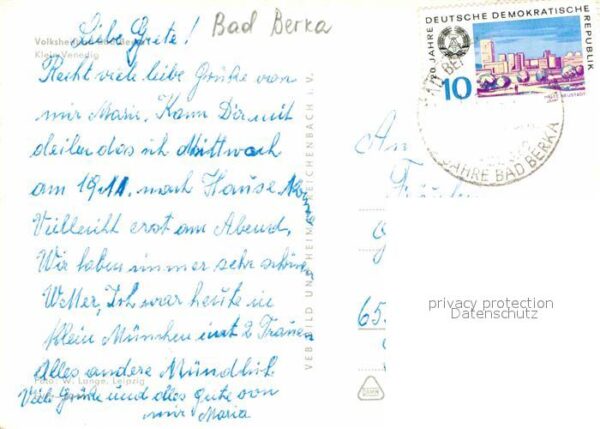 Bad Berka
Liebe Grete!
Klein Venedig
Recht viele liebe Grüße von
mir Marie. Kann Dir mit
deilen das ich Mittwoch
am 19.11. nach Hause
Villeicht erst am Abend.
Wir haben immer sehr schönes
Wetter, Ich war heute in
klein München mit 2 Frauen
Alles andere Mündlich
Foto: W. Lange, Leipzig
Viele Grüße und alles gute von
mir Maria
VEB BILD UND HEIMAT REICHENBACH i. V.
20 JAHRE DEUTSCHE DEMOKRATISCHE REPUBLIK
10
JAHRE BAD BERKA
An
65
privacy protection
Datenschutz